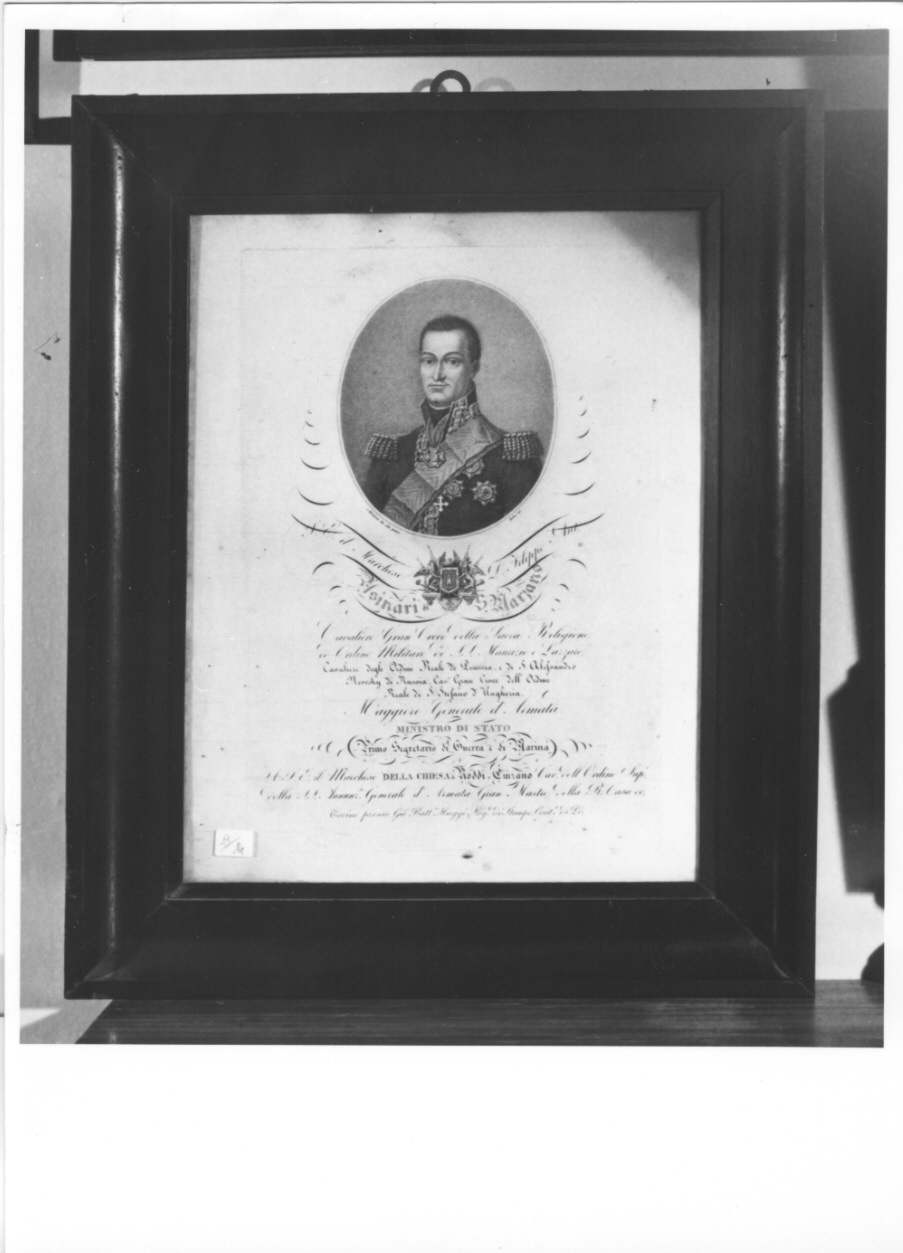 S. E. il Marchese D. Filippo Ant.
Asinari di S. Marzano
Cavaliere Gran Croce della Sacra Religione
ed Ordine Militare de' S.S. Maurizio e Lazzaro
Cavaliere degli Ordini Reale di Prussia, e di S. Alessandro
Newsky di Russia, Cav. Gran Croce dell' Ordine
Reale di S. Stefano d'Ungheria.
Maggiore Generale d'Armata
MINISTRO DI STATO
(Primo Segretario di Guerra e di Marina)
A S. E. il Marchese DELLA CHIESA di Roddi e Cinzano Cav. dell'Ordine Sup.
della S.S. Annunz. Generale d'Armata Gran Mastro della R. Casa ec.
Torino presso Gio. Batt. Maggi, Neg. di Stampe Cont. di Po.